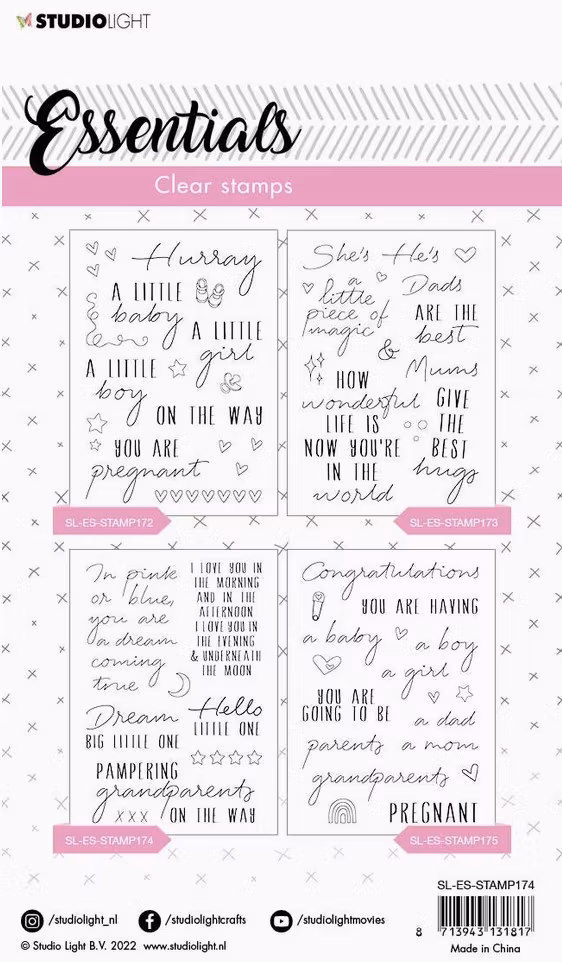 STUDIOLIGHT
Essentials
Clear stamps
Hurray
A LITTLE
baby
A LITTLE
girl
A LITTLE
boy
ON THE WAY
YOU ARE
pregnant
SL-ES-STAMP172
She's He's
a
little
piece of
magic
Dads
ARE THE
best
&
Mums
HOW
wonderful
LIFE IS
NOW YOU'RE
IN THE
world
GIVE
THE
BEST
hugs
SL-ES-STAMP173
In pink
or blue,
you are
a dream
coming
true
I LOVE YOU IN
THE MORNING
AND IN THE
AFTERNOON
I LOVE YOU IN
THE EVENING
& UNDERNEATH
THE MOON
Dream
BIG LITTLE ONE
Hello
LITTLE ONE
PAMPERING
grandparents
xxx ON THE WAY
SL-ES-STAMP174
Congratulations
YOU ARE HAVING
a baby
a boy
a girl
YOU ARE
GOING TO BE
a dad
parents a mom
grandparents
PREGNANT
SL-ES-STAMP175
SL-ES-STAMP174
8 713943 131817
Made in China
/studiolight_nl /studiolightcrafts /studiolightmovies
© Studio Light B.V. 2022 www.studiolight.nl